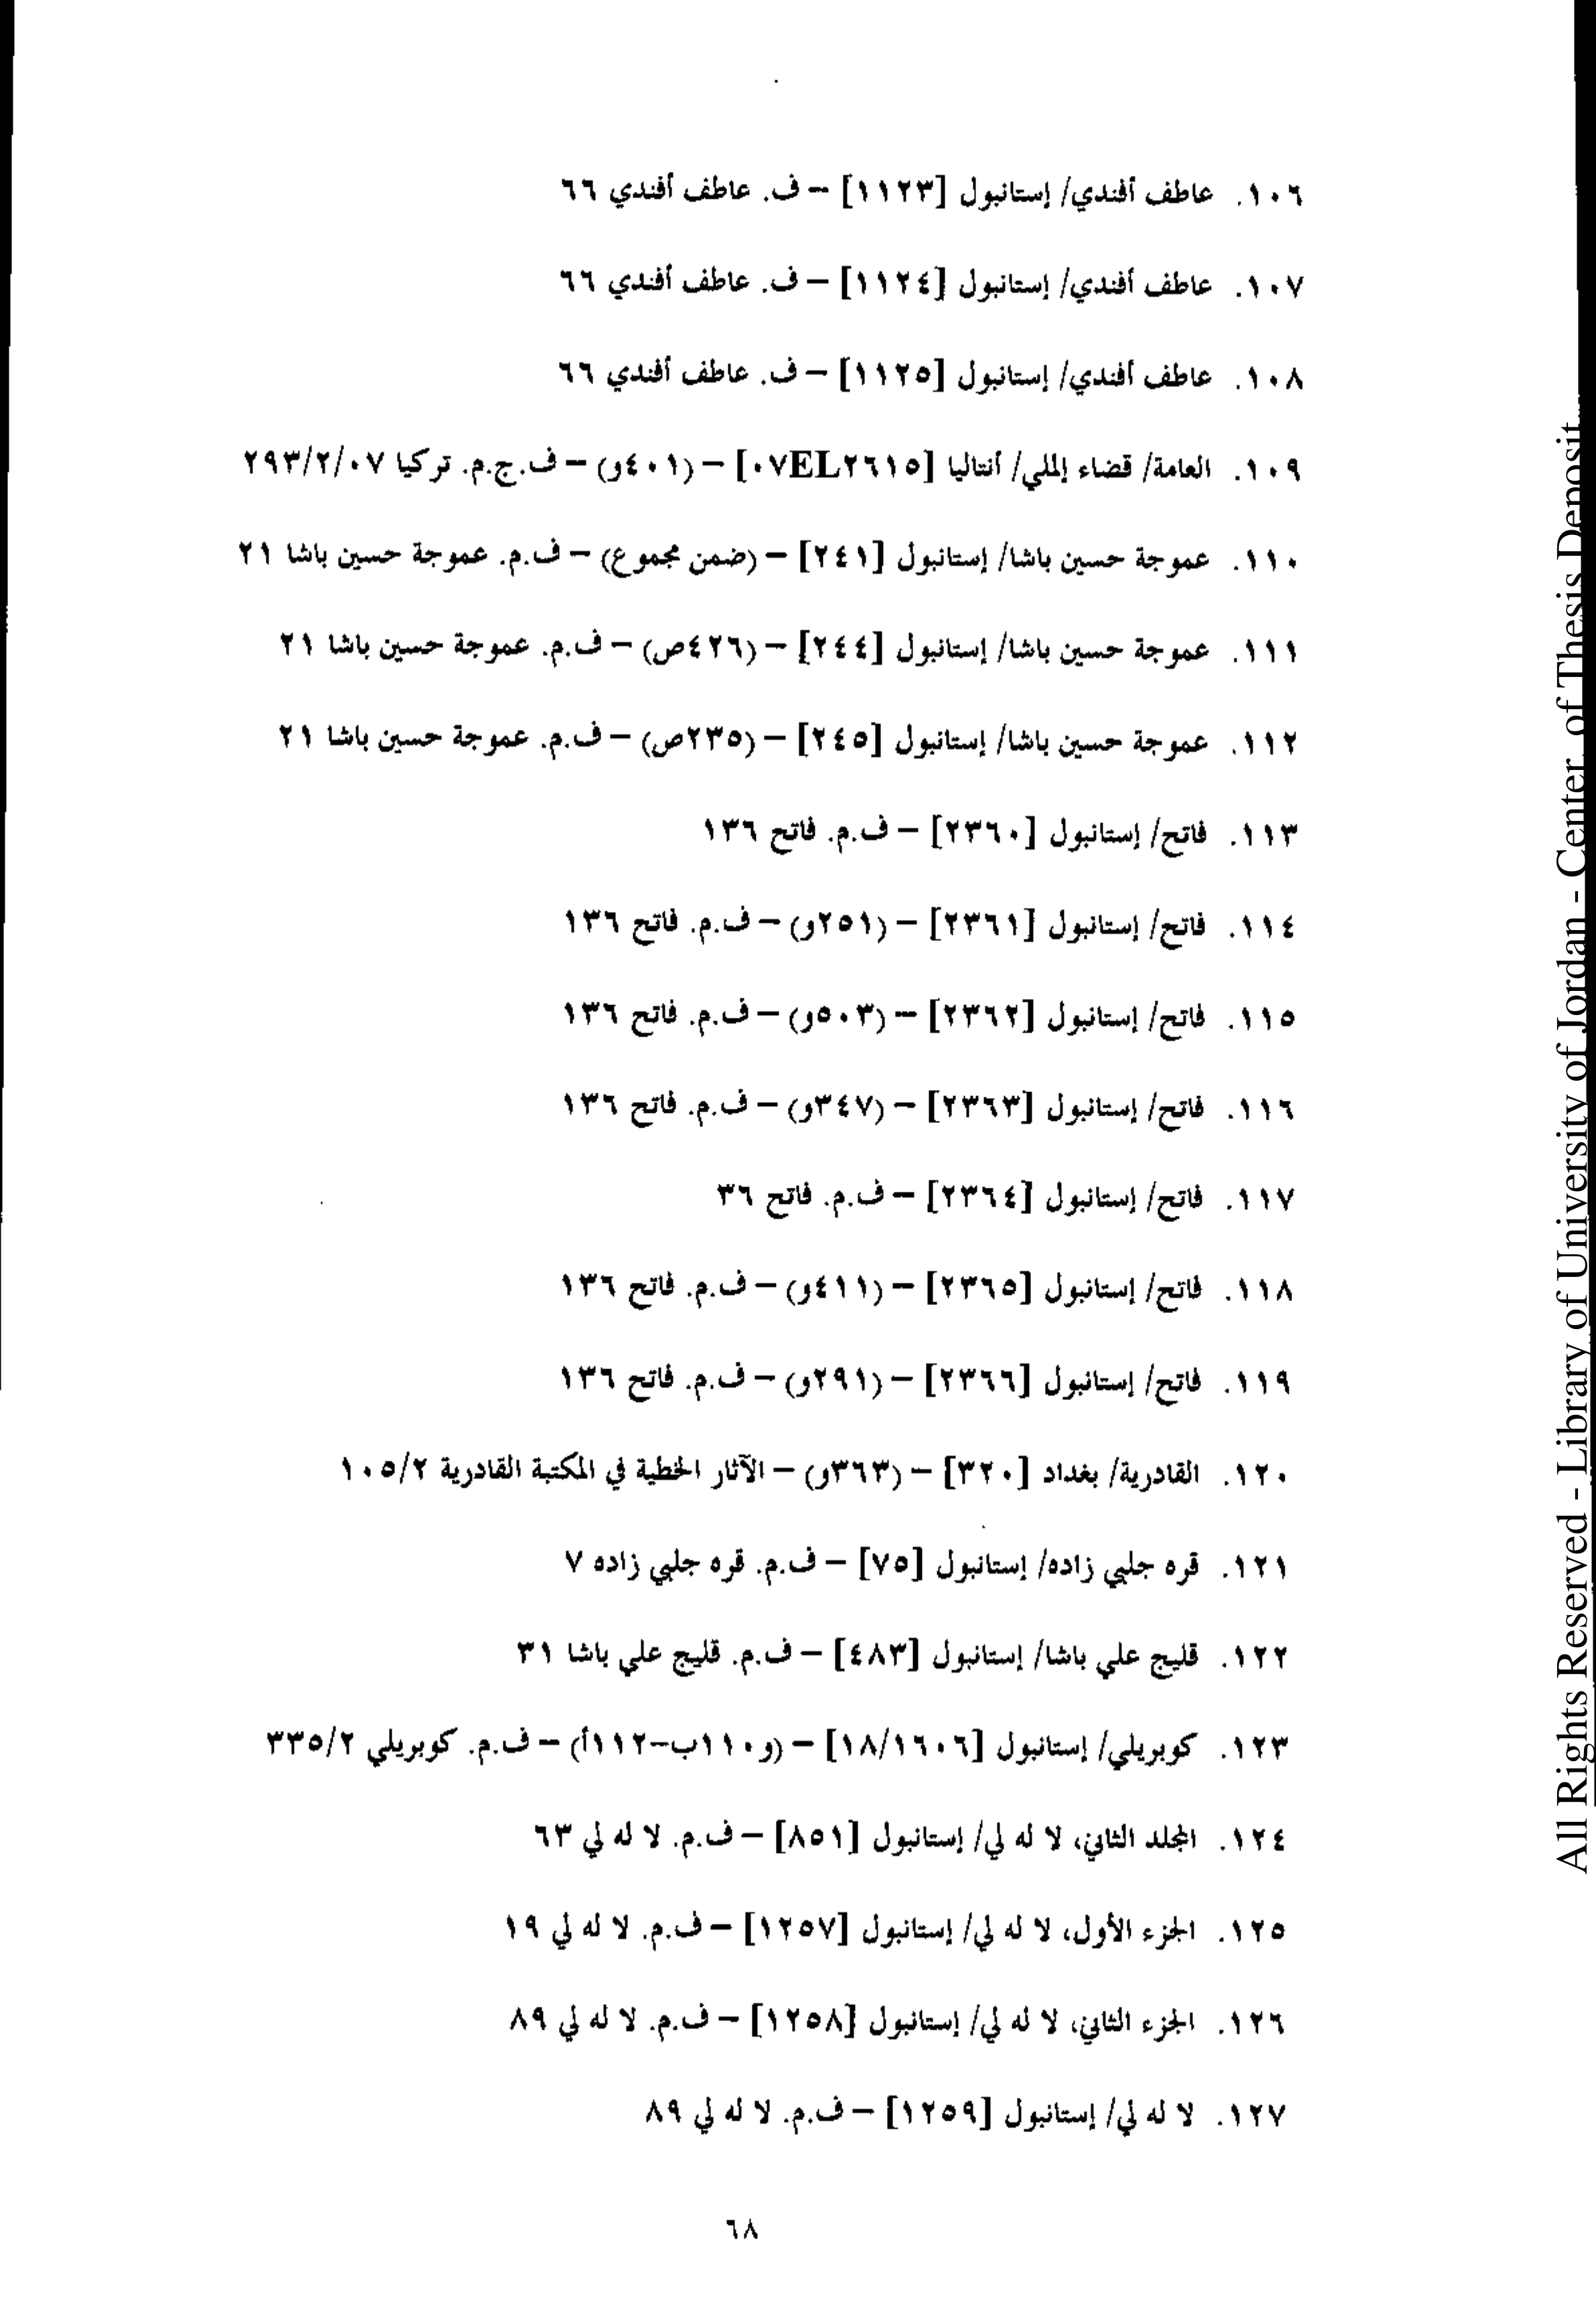 ١٠٦. عاطف أفندي/ إستانبول [١١٢٣] – ف. عاطف أفندي ٦٦
١٠٧. عاطف أفندي/ إستانبول [١١٢٤] – ف. عاطف أفندي ٦٦
١٠٨. عاطف أفندي/ إستانبول [١١٢٥] – ف. عاطف أفندي ٦٦
١٠٩. العامة/ قضاء إلملي/ أنتاليا [٠٧EL٢٦١٥] – (٤٠١و) – ف.ج.م. تركيا ٢٩٣/٢/٠٧
١١٠. عموجة حسين باشا/ إستانبول [٢٤١] – (ضمن مجموع) – ف.م. عموجة حسين باشا ٢١
١١١. عموجة حسين باشا/ إستانبول [٢٤٤] – (٤٢٦ص) – ف.م. عموجة حسين باشا ٢١
١١٢. عموجة حسين باشا/ إستانبول [٢٤٥] – (٢٣٥ص) – ف.م. عموجة حسين باشا ٢١
١١٣. فاتح/ إستانبول [٢٣٦٠] – ف.م. فاتح ١٣٦
١١٤. فاتح/ إستانبول [٢٣٦١] – (٢٥١و) – ف.م. فاتح ١٣٦
١١٥. فاتح/ إستانبول [٢٣٦٢] – (٥٠٣و) – ف.م. فاتح ١٣٦
١١٦. فاتح/ إستانبول [٢٣٦٣] – (٣٤٧و) – ف.م. فاتح ١٣٦
١١٧. فاتح/ إستانبول [٢٣٦٤] – ف.م. فاتح ٣٦
١١٨. فاتح/ إستانبول [٢٣٦٥] – (٤١١و) – ف.م. فاتح ١٣٦
١١٩. فاتح/ إستانبول [٢٣٦٦] – (٢٩١و) – ف.م. فاتح ١٣٦
١٢٠. القادرية/ بغداد [٣٢٠] – (٣٦٣و) – الآثار الخطية في المكتبة القادرية ١٠٥/٢
١٢١. قره جلبي زاده/ إستانبول [٧٥] – ف.م. قره جلبي زاده ٧
١٢٢. قليج علي باشا/ إستانبول [٤٨٣] – ف.م. قليج علي باشا ٣١
١٢٣. كوبريلي/ إستانبول [١٨/١٦٠٦] – (و١١٠ب–١١٢أ) – ف.م. كوبريلي ٣٣٥/٢
١٢٤. المجلد الثاني، لا له لي/ إستانبول [٨٥١] – ف.م. لا له لي ٦٣
١٢٥. الجزء الأول، لا له لي/ إستانبول [١٢٥٧] – ف.م. لا له لي ١٩
١٢٦. الجزء الثاني، لا له لي/ إستانبول [١٢٥٨] – ف.م. لا له لي ٨٩
١٢٧. لا له لي/ إستانبول [١٢٥٩] – ف.م. لا له لي ٨٩
٦٨
All Rights Reserved - Library of University of Jordan - Center of Thesis Deposit